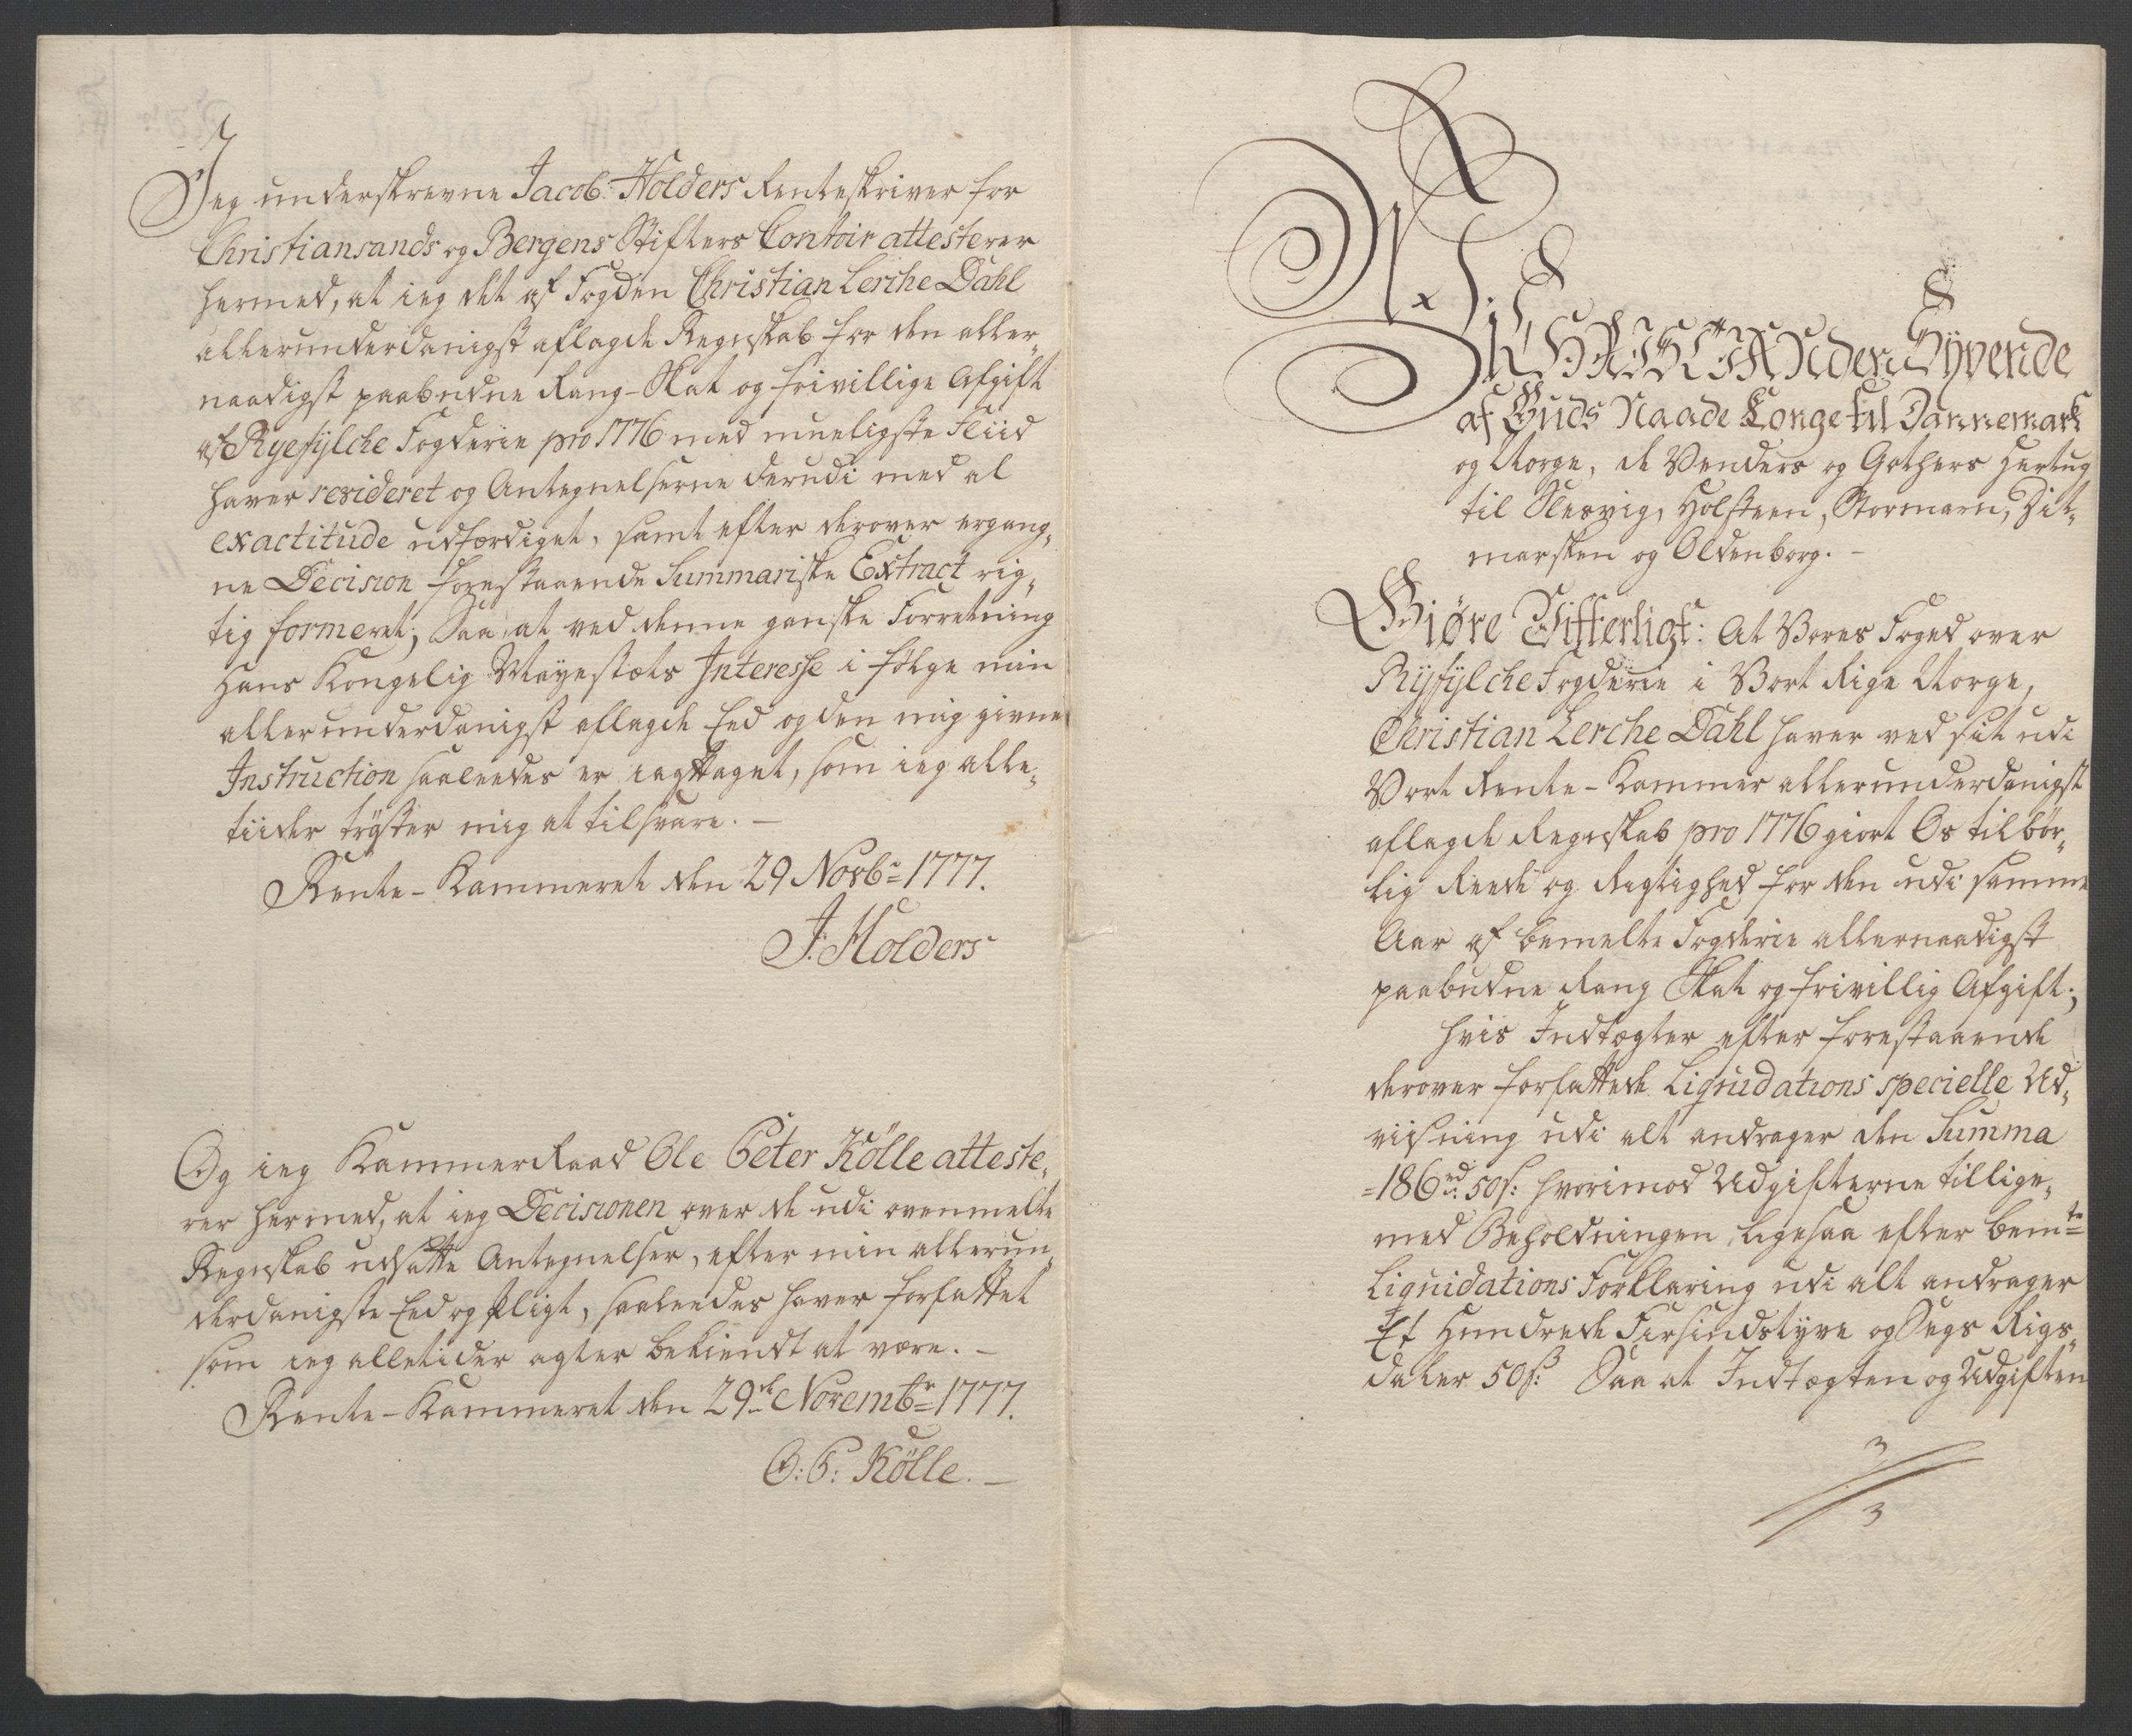 Jeg underskrevne Jacob Holders Renteskriver for
Christiansands og Bergens Stifters Contoir attesterer
hermed, at ieg det af Fogden Christian Lerche Dahl
allerunderdanigst aflagde Regnskab for den aller-
naadigst paabudne Rang-Skat og frivillige Afgift
af Ryefylche Fogderie pro 1776 med mueligste Fliid
haver revideret og Antegnelserne derudi med al
exactitude udfærdiget, samt efter derover ergang-
ne Decision forestaaende Summariske Extract rig-
tig formeret; Saa at ved denne ganske Forretning
Hans Kongelig Mayestæts Interesse i følge min
allerunderdanigst aflagde Eed og den mig givne
Instruction saaleedes er iagttaget, som ieg alle-
tiider trøster mig at tilsvare. -
Rente-Kammeret den 29 Novbr 1777.
J: Holders
Og ieg KammerRaad Ole Peter Kölle atteste-
rer hermed, at ieg Decisionen over de udi ovenmelte
Regnskab udsatte Antegnelser, efter min allerun-
derdanigste Eed og Pligt, saaleedes haver forfattet
som ieg alletider agter bekiendt at være. -
Rente-Kammeret den 29de Novembr 1777.
O: P: Kölle. -
Vi
CHRISTIAN den Syvende
af Guds Naade Konge til Dannemark
og Norge, de Venders og Gothers Hertug
til Slesvig, Holsteen, Stormarn, Dit-
marsken og Oldenborg. -
Giøre Vitterligt: At Vores Foged over
Ryfylche Fogderie i Vort Rige Norge,
Christian Lerche Dahl haver ved sit udi
Vort Rente-Kammer allerunderdanigst
aflagde Regnskab pro 1776 giort Os tilbør-
lig Reede og Rigtighed for den udi samme
Aar af bemelte Fogderie allernaadigst
paabudne Rang Skat og frivillig Afgift;
hvis Indtægter efter forestaaende
derover forfattede Liqvidations specielle Ud-
viisning udi alt andrager den Summa
=186 rd. 50 s: hvorimod Udgifterne tillige-
med Beholdningen ligesaa efter bemte
Liquidations Forklaring udi alt andrager
Et Hundrede Fiirsindstyve og Sex Rigs-
daler 50 s: Saa at Indtægten og Udgiften
3
3